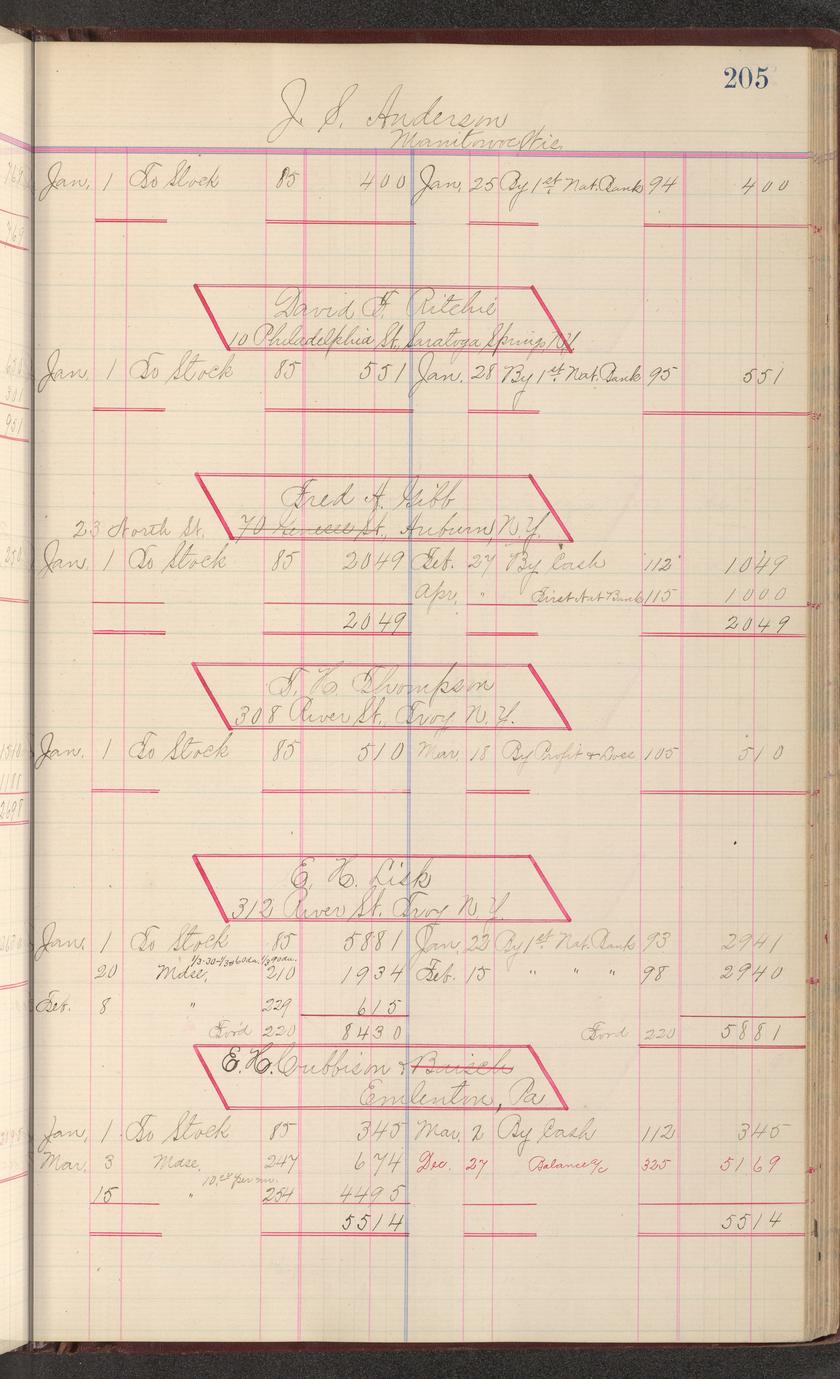 205
J. S. Anderson
Manitowoc Wis.
Jan. 1 To Stock 85 400 Jan. 25 By 1st Nat. Bank 94 400
David F. Ritchie
10 Philadelphia St. Saratoga Springs, N.Y.
Jan. 1 To Stock 85 551 Jan. 28 By 1st Nat. Bank 95 551
Fred A. Gibb
23 North St. 70 Genesee St., Auburn, N.Y.
Jan. 1 To Stock 85 2049 Feb. 27 By Cash 112 1049
Apr. " First Nat Bank 115 1000
2049 2049
T. H. Thompson
308 River St., Troy N.Y.
Jan. 1 To Stock 85 510 Mar. 18 By Profit & Loss 105 510
E. H. Lisk
312 River St. Troy N.Y.
Jan. 1 To Stock 85 5881 Jan. 22 By 1st Nat. Bank 93 2941
1/3-30-1/3-60da. 1/3 90da.
20 Mdse, 210 1934 Feb. 15 " " " 98 2940
Feb. 8 " 229 615
Ford 220 8430 Ford 220 5881
E. H. Cubbison & Baisch
Emlenton, Pa
Jan. 1 To Stock 85 345 Mar. 2 By Cash 112 345
Mar. 3 Mdse. 247 674 Dec. 27 Balance a/c 325 5169
15 " 254 4495
5514 5514